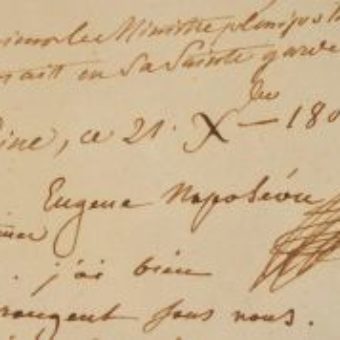 Ministre plenipot
ait en Sa Sainte garde
ine, ce 21. Xbre 180
Eugene Napoléon
j'ai bien
rougent sous nous.